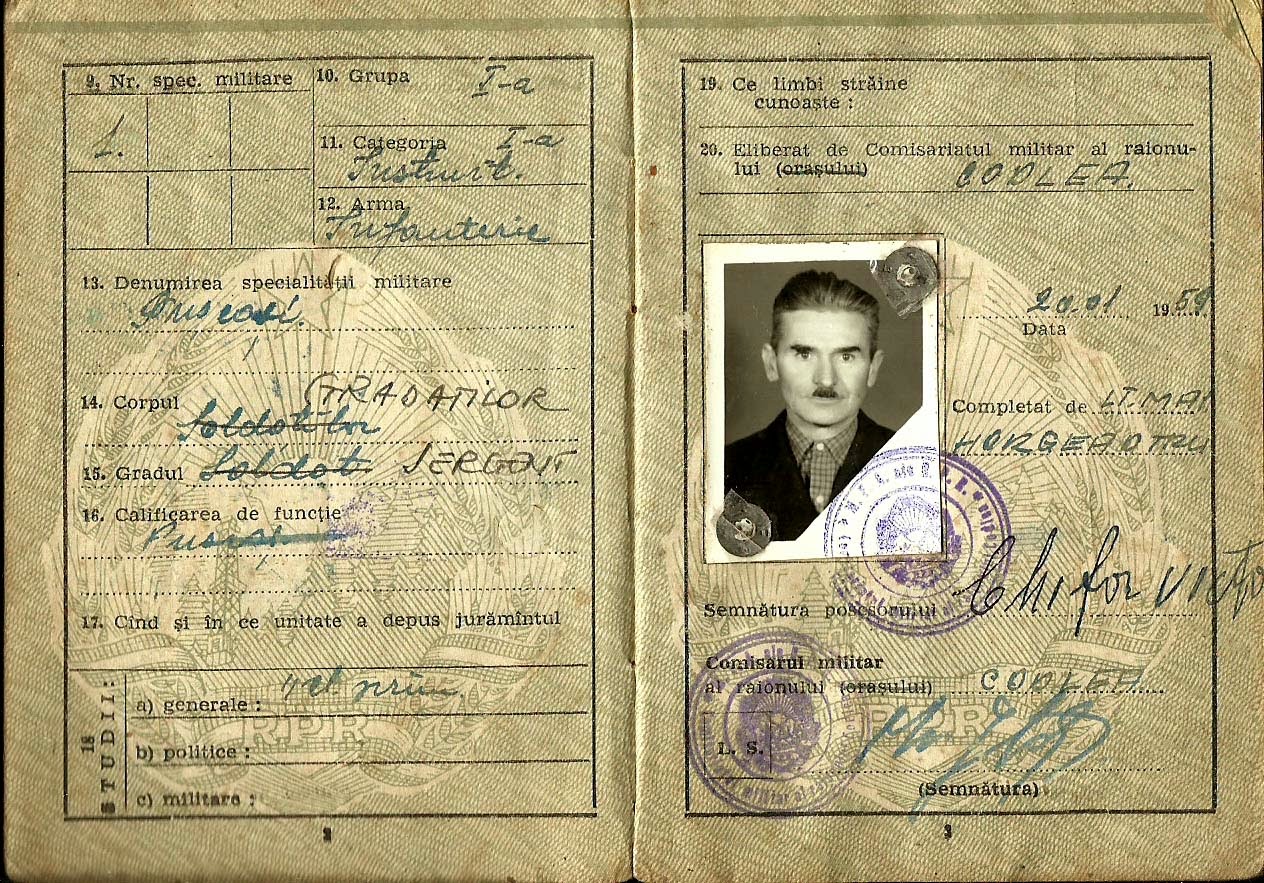 9. Nr. spec. militare
1.
10. Grupa I-a
11. Categoria I-a
Instruit.
12. Arma
Infanterie
13. Denumirea specialității militare
14. Corpul GRADAȚILOR
Soldatilor
15. Gradul Soldat SERGENT
16. Calificarea de funcție
17. Cînd și în ce unitate a depus jurămîntul
18 STUDII:
a) generale : 4 cl prim.
b) politice :
c) militare :
RPR
2
19. Ce limbi străine
cunoaște :
20. Eliberat de Comisariatul militar al raionu-
lui (orașului) CODLEA.
20.01 1959
Data
Completat de LT.MAJ
Semnătura posesorului Chifor Victo
Comisarul militar
al raionului (orașului) CODLEA
RPR
L. S.
(Semnătura)
3